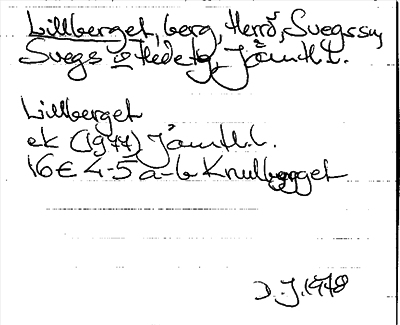 Lillberget, berg, Herrö, Svegs sn,
Svegs o Hede tg, Jämtl. l.
Lillberget
ek (1977) Jämtl. l.
16E 4-5 a-b Knullberget
D. J. 1978